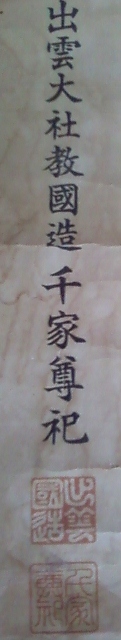 出雲大社教國造千家尊祀
出雲國造
千家尊祀